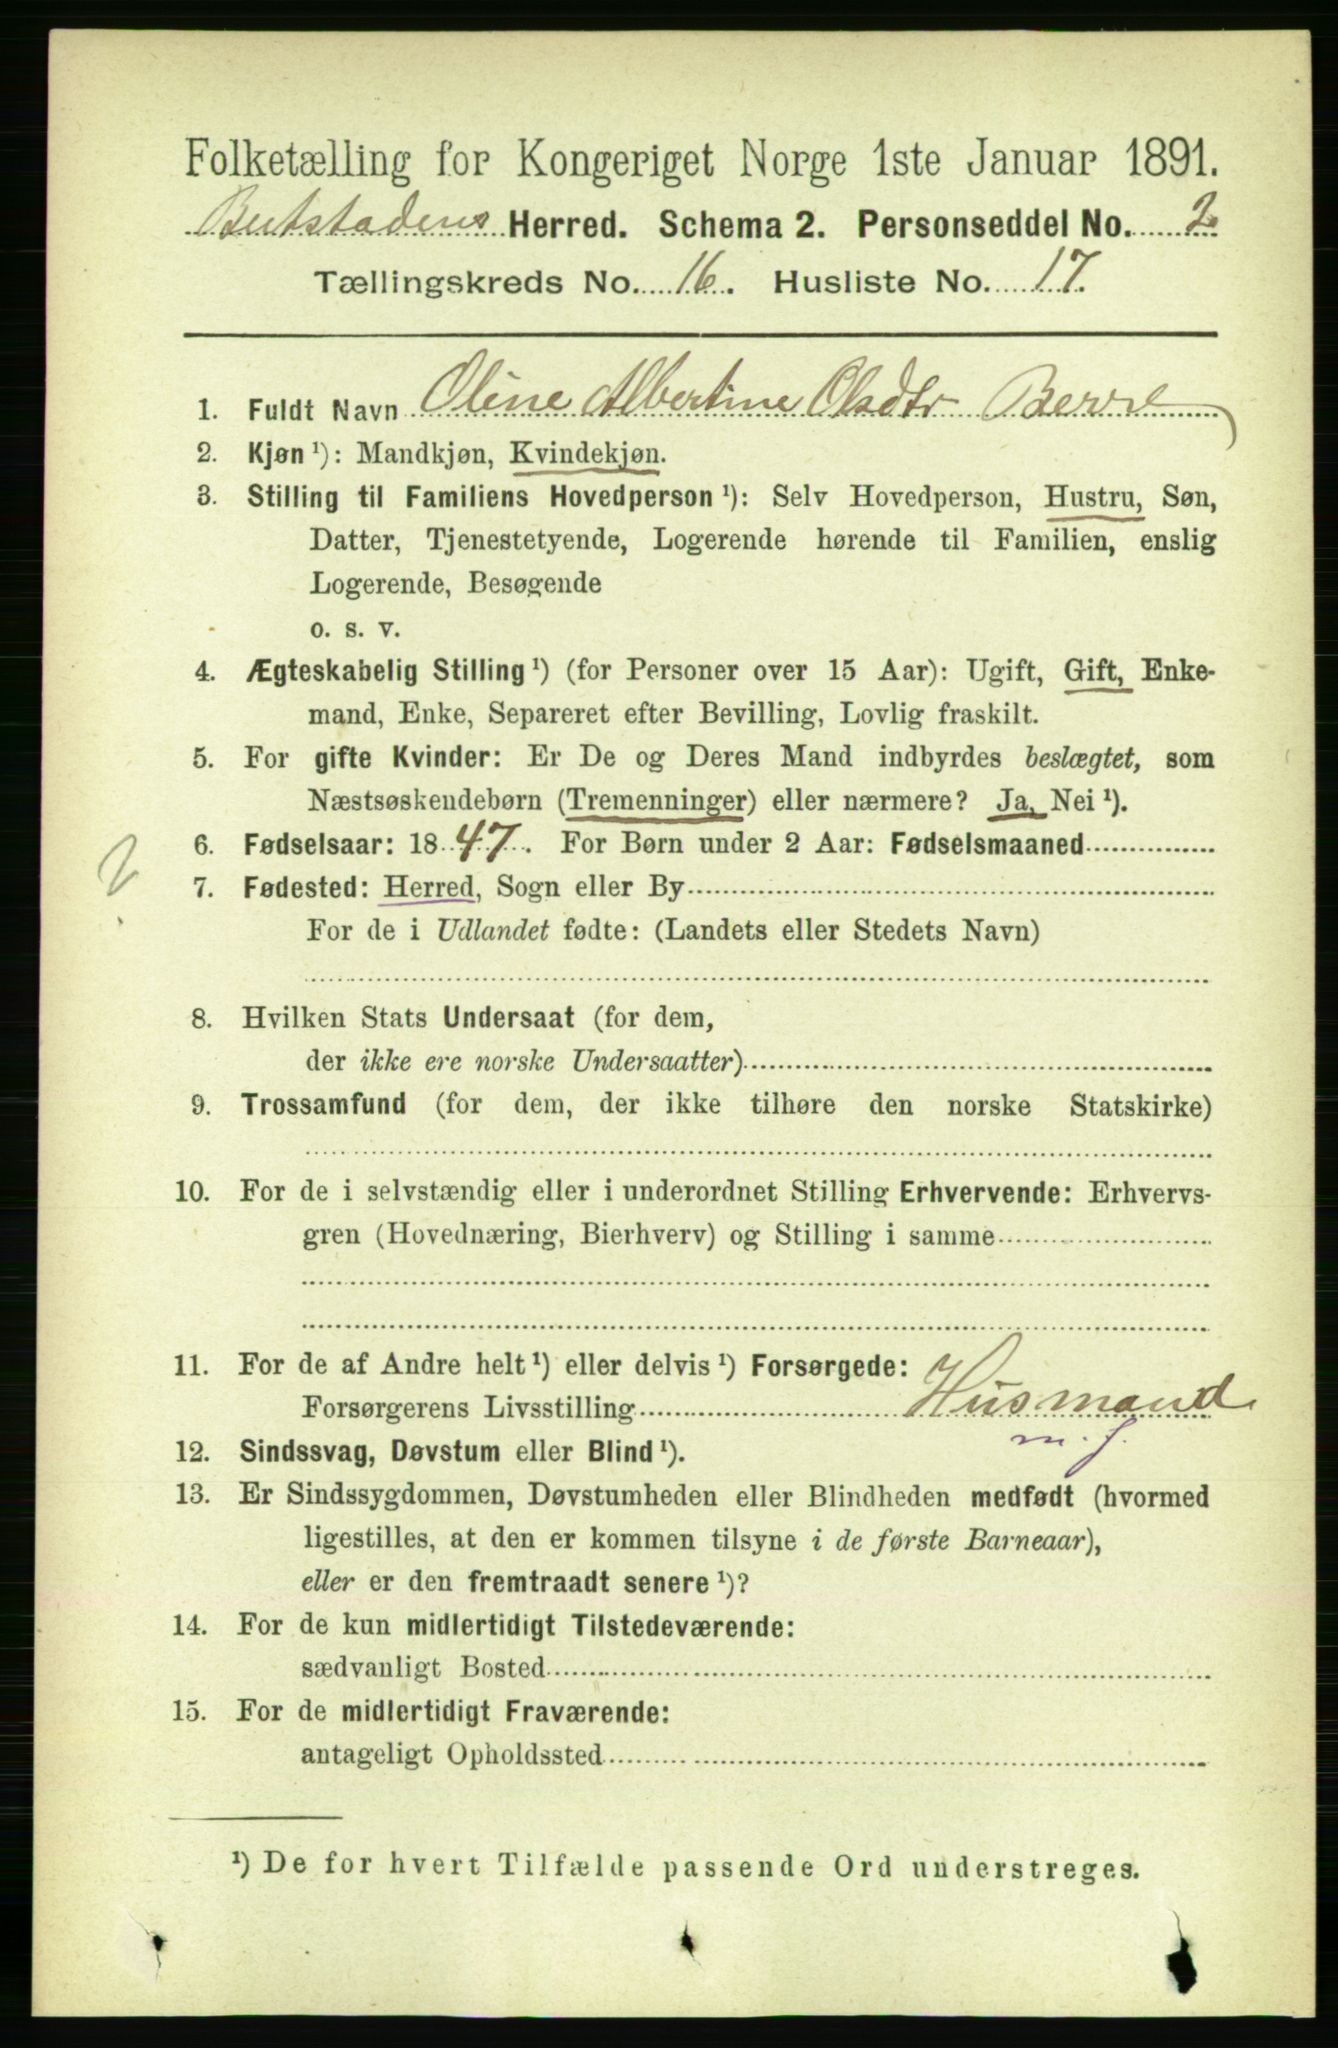 Folketælling for Kongeriget Norge 1ste Januar 1891.
Beitstadens Herred. Schema 2. Personseddel No. 2
Tællingskreds No. 16. Husliste No. 17.
1. Fuldt Navn Oline Albertine Olsdtr Berre
2. Kjøn ¹): Mandkjøn, Kvindekjøn.
3. Stilling til Familiens Hovedperson ¹): Selv Hovedperson, Hustru, Søn,
Datter, Tjenestetyende, Logerende hørende til Familien, enslig
Logerende, Besøgende
o. s. v.
4. Ægteskabelig Stilling ¹) (for Personer over 15 Aar): Ugift, Gift, Enke-
mand, Enke, Separeret efter Bevilling, Lovlig fraskilt.
5. For gifte Kvinder: Er De og Deres Mand indbyrdes beslægtet, som
Næstsøskendebørn (Tremenninger) eller nærmere? Ja, Nei ¹).
6. Fødselsaar: 1847. For Børn under 2 Aar: Fødselsmaaned
7. Fødested: Herred, Sogn eller By
For de i Udlandet fødte: (Landets eller Stedets Navn)
8. Hvilken Stats Undersaat (for dem,
der ikke ere norske Undersaatter)
9. Trossamfund (for dem, der ikke tilhøre den norske Statskirke)
10. For de i selvstændig eller i underordnet Stilling Erhvervende: Erhvervs-
gren (Hovednæring, Bierhverv) og Stilling i samme
11. For de af Andre helt ¹) eller delvis ¹) Forsørgede:
Forsørgerens Livsstilling Husmand
m. j.
12. Sindssvag, Døvstum eller Blind ¹).
13. Er Sindssygdommen, Døvstumheden eller Blindheden medfødt (hvormed
ligestilles, at den er kommen tilsyne i de første Barneaar),
eller er den fremtraadt senere ¹)?
14. For de kun midlertidigt Tilstedeværende:
sædvanligt Bosted
15. For de midlertidigt Fraværende:
antageligt Opholdssted
¹) De for hvert Tilfælde passende Ord understreges.